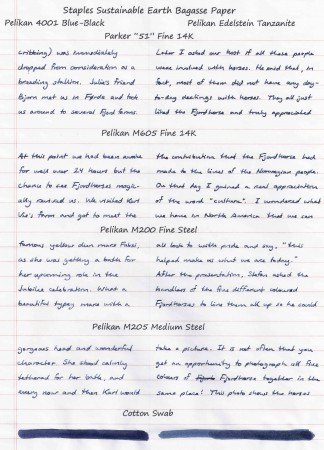 Staples Sustainable Earth Bagasse Paper
Pelikan 4001 Blue-Black
Pelikan Edelstein Tanzanite
Parker "51" Fine 14K
cribbing) was immediately
dropped from consideration as a
breeding stallion. Julie's friend
Bjorn met us in Førde and took
us around to several Fjord farms.
Later I asked our host if all these people
were involved with horses. He said that, in
fact, most of them did not have any day-
to-day dealings with horses. They all just
liked the Fjordhorse and truly appreciated
Pelikan M605 Fine 14K
At this point we had been awake
for well over 24 hours but the
chance to see Fjordhorses magic-
ally revived us. We visited Karl
Vie's farm and got to meet the
the contribution that the Fjordhorse had
made to the lives of the Norwegian people.
On that day I gained a real appreciation
of the word "culture". I wondered what
we have in North America that we can
Pelikan M200 Fine Steel
famous yellow dun mare Faksi,
as she was getting a bath for
her upcoming role in the
Jubilee celebration. What a
beautiful typey mare with a
all look to with pride and say, "this
helped make us what we are today."
After the presentation, Stefan asked the
handlers of the five different coloured
Fjordhorses to line them all up so he could
Pelikan M205 Medium Steel
gorgeous head and wonderful
character. She stood calmly
tethered for her bath, and
every now and then Karl would
take a picture. It is not often that you
get an opportunity to photograph all five
colours of Fjordhorse together in the
same place! This photo shows the horses
Cotton Swab